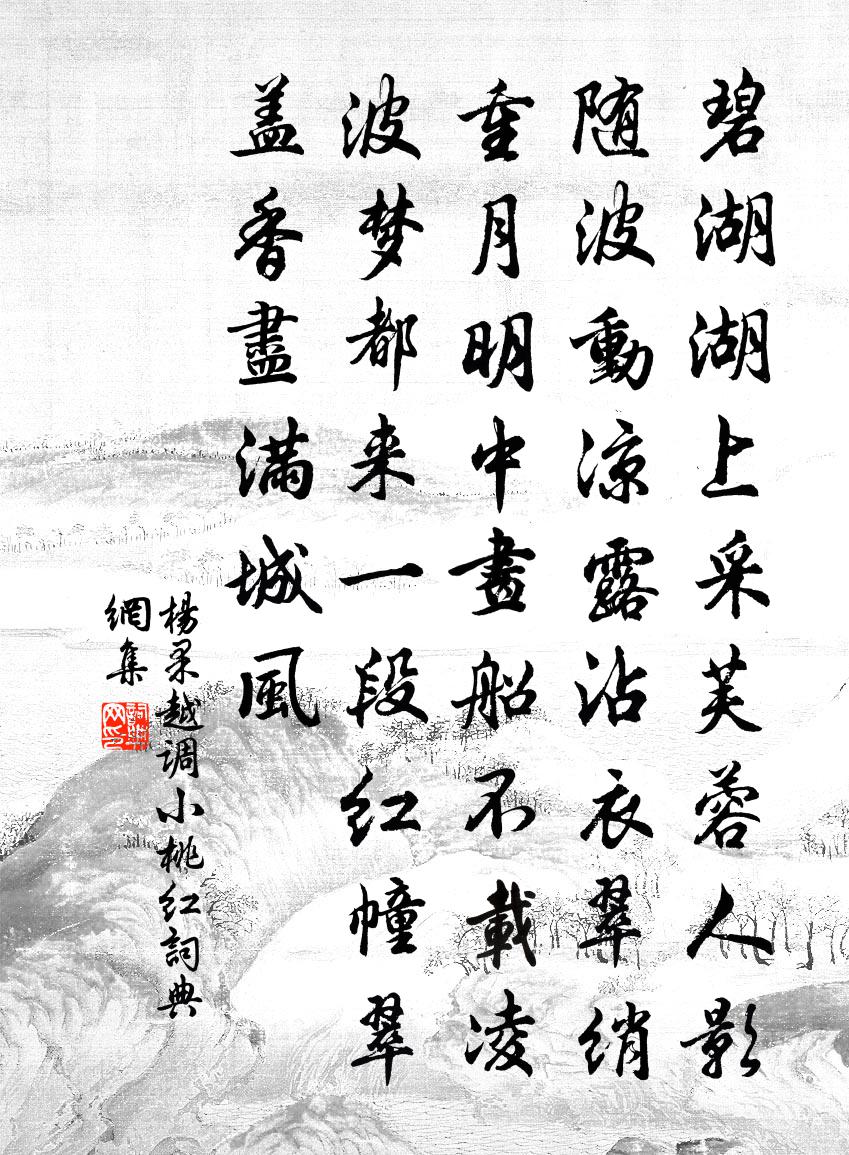 碧湖湖上采芙蓉人影
随波動凉露沾衣翠绡
重月明中畫船不載凌
波梦都来一段红幢翠
盖香盡滿城風
楊果越調小桃红詞典
網集